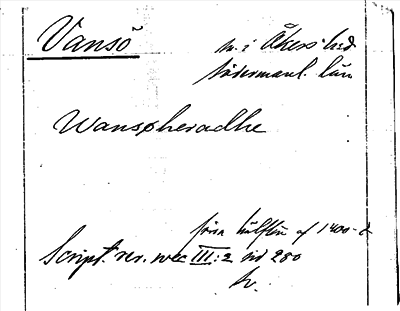 Vansö
n. i Åkers hd
Södermanl. län
Wansøheradhe
förra hälften af 1400-t
Script. rer. svec III:2 sid 280